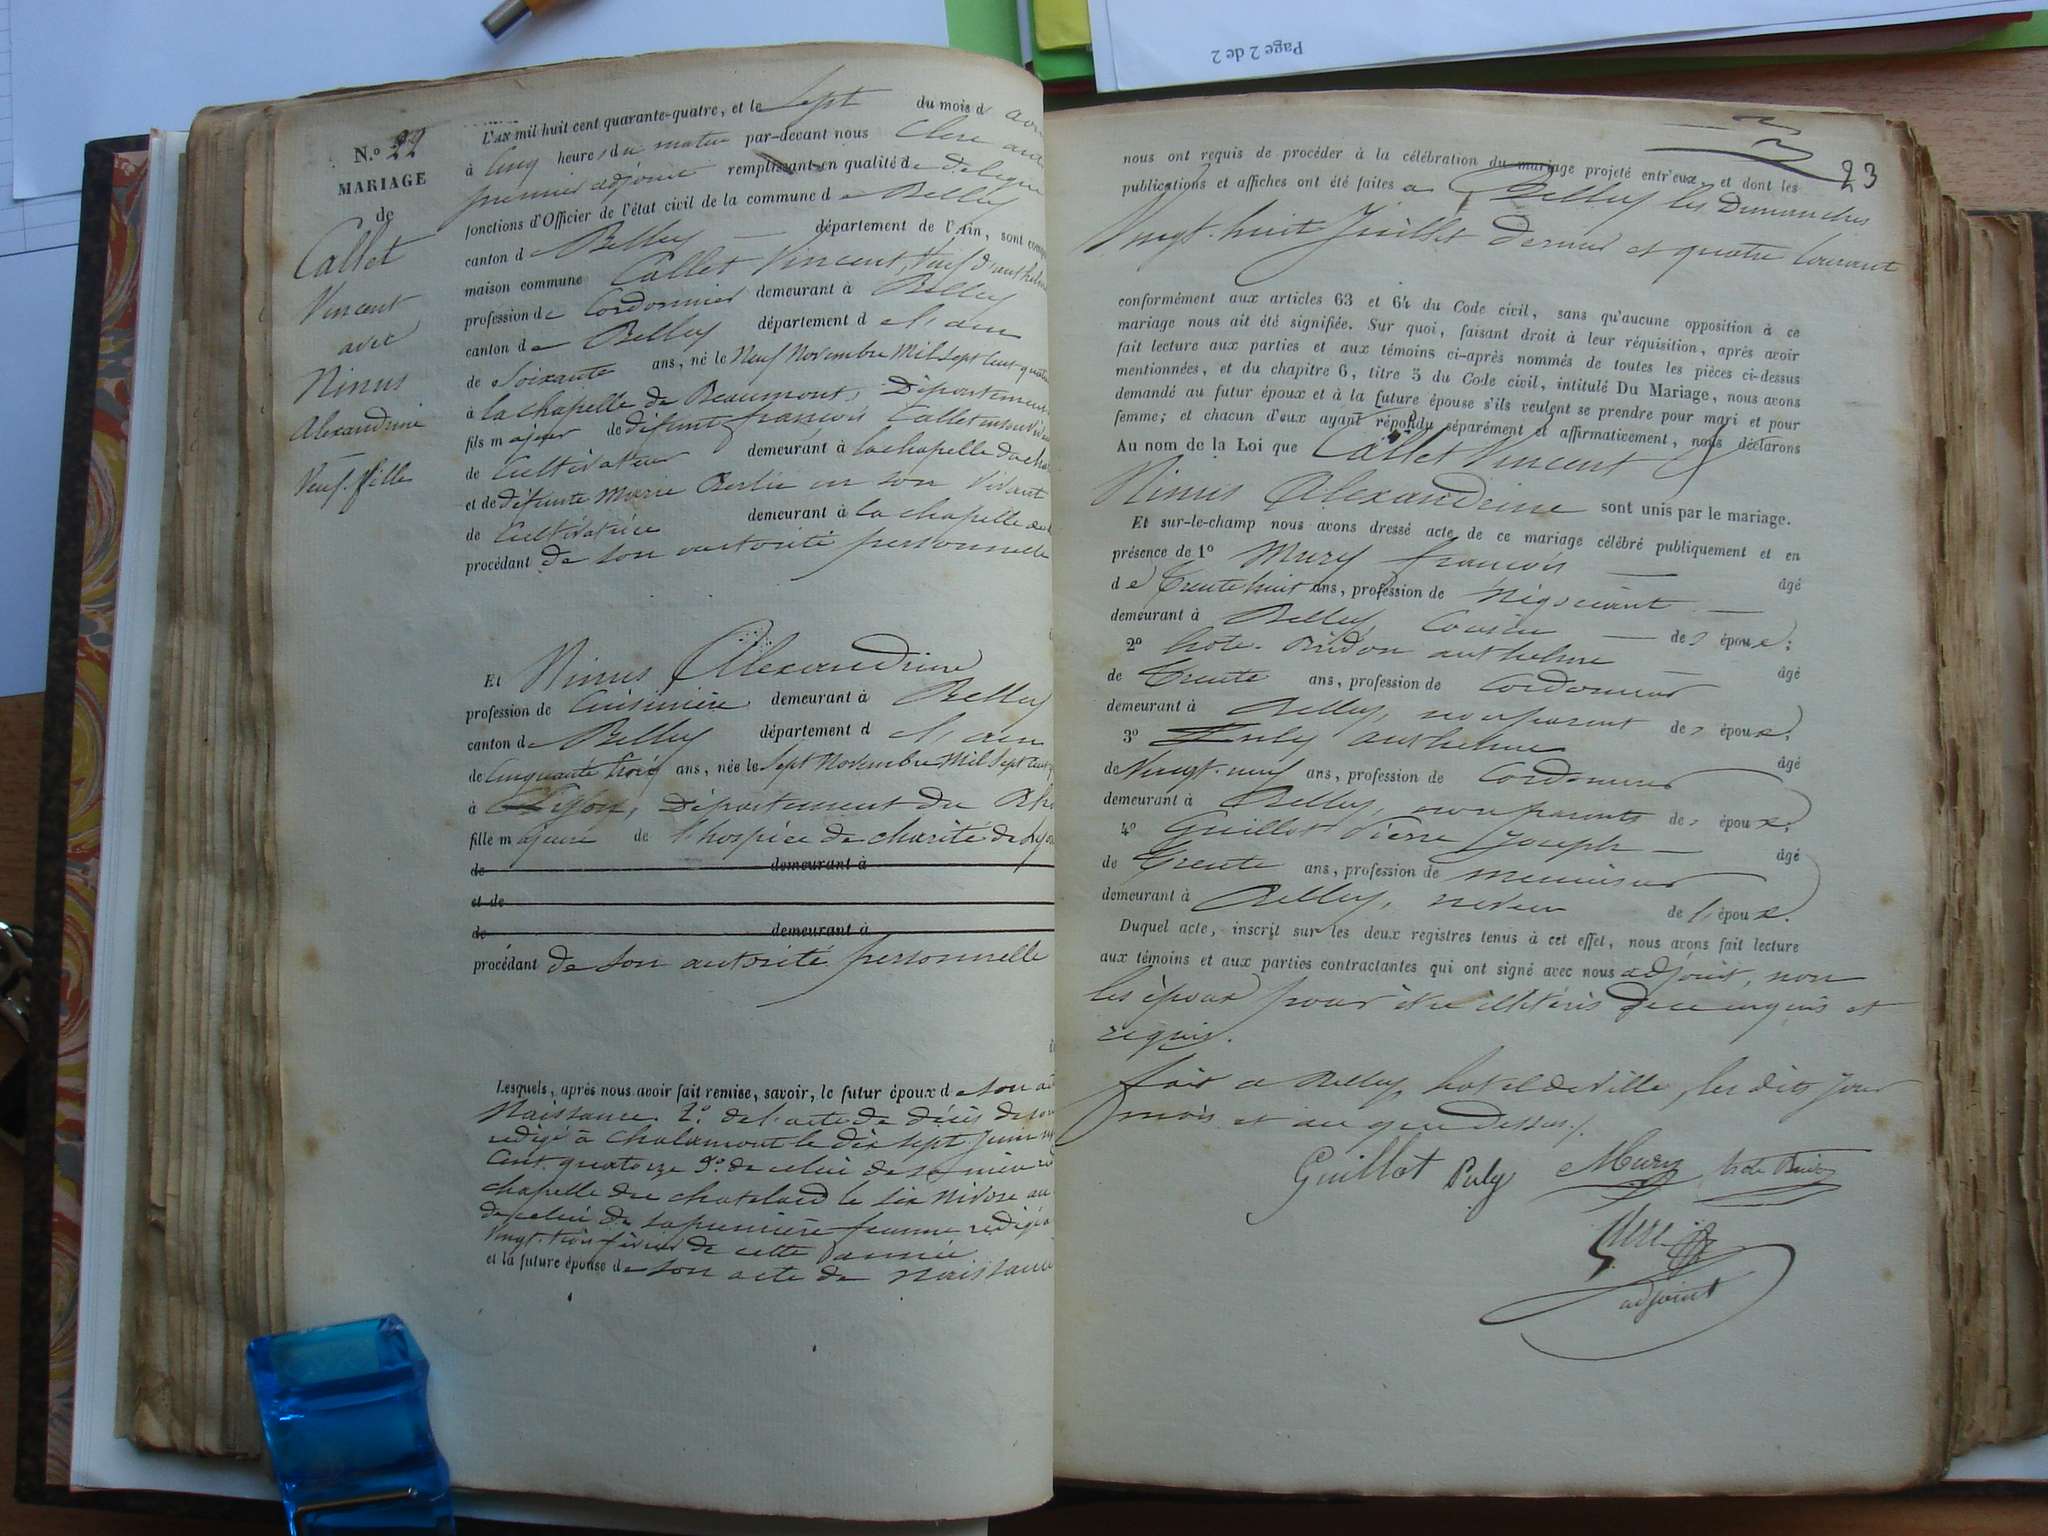 Page 2 de 2
N.o 22
MARIAGE
de
Callet
Vincent
avec
Ninus
Alexandrine
Veuf. fille
L'AN mil huit cent quarante-quatre, et le Sept du mois d
à Cinq heures du matin par-devant nous Clerc
premier adjoint remplissant en qualité de
fonctions d'Officier de l'état civil de la commune de Belley
canton de Belley département de l'Ain, sont
maison commune Callet Vincent, Veuf
profession de Cordonnier demeurant à Belley
canton de Belley département de l'ain
de Soixante ans, né le Neuf Novembre Mil Sept Cent
à la chapelle de Beaumont, Département
fils majeur de défunt françois Callet
de Cultivateur demeurant à la chapelle du
et de défunte Marie en son vivant
de Cultivatrice demeurant à la chapelle
procédant de son autorité personnelle
Et Ninus Alexandrine
profession de Cuisinière demeurant à Belley
canton de Belley département de l'ain
de Cinquante trois ans, née le Sept Novembre Mil Sept Cent
à Lyon, Département du
fille majeure de l'hospice de charité de Lyon
de demeurant à
et de
de demeurant à
procédant de son autorité personnelle
Lesquels, après nous avoir fait remise, savoir, le futur époux de son
Naissance. 2.o de l'acte de décès de son
redigé à Chalamont le dix sept Juin
Cent quatorze 3.o de celui de sa mère
chapelle du chatelard le six Nivose an
de celui de sa première femme redigé
Vingt trois février de cette année
et la future épouse de son acte de Naissance
23
nous ont requis de procéder à la célébration du mariage projeté entr'eux, et dont les
publications et affiches ont été faites a Belley les Dimanches
Vingt-huit Juillet dernier et quatre Courant
conformément aux articles 63 et 64 du Code civil, sans qu'aucune opposition à ce
mariage nous ait été signifiée. Sur quoi, faisant droit à leur réquisition, après avoir
fait lecture aux parties et aux témoins ci-après nommés de toutes les pièces ci-dessus
mentionnées, et du chapitre 6, titre 5 du Code civil, intitulé Du Mariage, nous avons
demandé au futur époux et à la future épouse s'ils veulent se prendre pour mari et pour
femme; et chacun d'eux ayant répondu séparément et affirmativement, nous déclarons
Au nom de la Loi que Callet Vincent &
Ninus Alexandrine sont unis par le mariage.
Et sur-le-champ nous avons dressé acte de ce mariage célébré publiquement et en
présence de 1o Mury françois âgé
de Trente huit ans, profession de Négociant
demeurant à Belley, Cousin des époux;
2o anthelme âgé
de Trente ans, profession de Cordonnier
demeurant à Belley, non parent des époux;
3o Puly anthelme âgé
de Vingt-neuf ans, profession de Cordonnier
demeurant à Belley, non parents des époux;
4o Guillot Pierre Joseph âgé
de Trente ans, profession de menuisier
demeurant à Belley, neveu de l'époux.
Duquel acte, inscrit sur les deux registres tenus à cet effet, nous avons fait lecture
aux témoins et aux parties contractantes qui ont signé avec nous adjoint, non
les époux pour être illitérés de ce enquis et
requis.
fait a Belley hotel de ville, les dits jour
mois et an que dessus.
Guillot Puly Mury
Clerc
adjoint